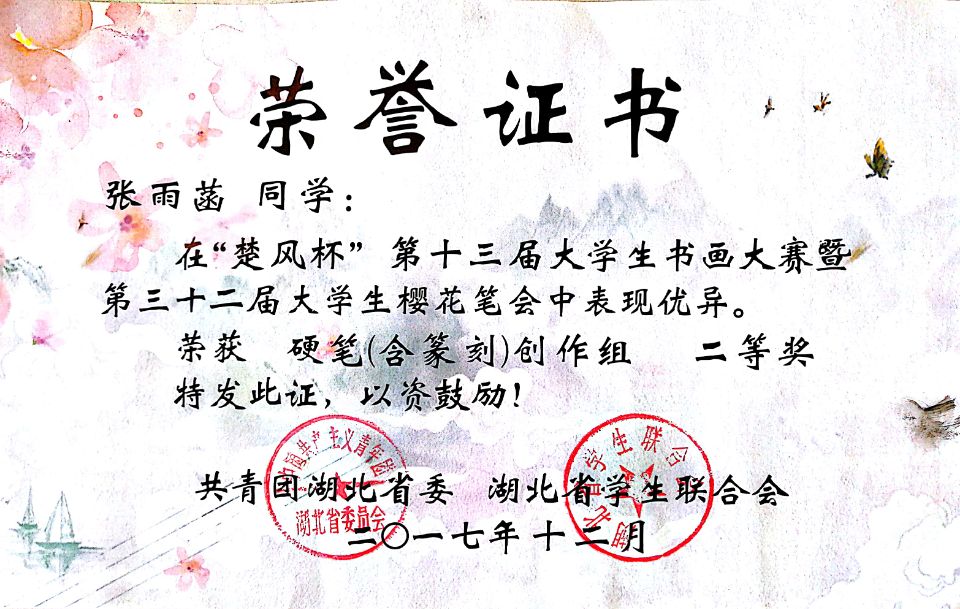 荣誉证书
张雨菡 同学：
在“楚风杯”第十三届大学生书画大赛暨
第三十二届大学生樱花笔会中表现优异。
荣获 硬笔(含篆刻)创作组 二等奖
特发此证，以资鼓励！
共青团湖北省委 湖北省学生联合会
二〇一七年十二月
中国共产主义青年团
湖北省委员会
湖北省学生联合会